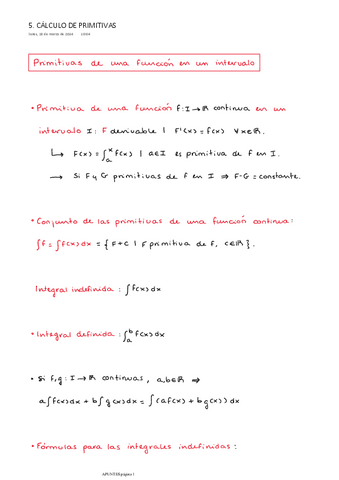 5. CÁLCULO DE PRIMITIVAS
Primitivas de una función en un intervalo
• Primitiva de una función f: I → ℝ continua en un
intervalo I: F derivable | F'(x) = f(x) ∀x∈ℝ.
↳ F(x) = ∫ₐˣ f(x) | a∈I es primitiva de f en I.
→ Si F y G primitivas de f en I ⇒ F-G = constante.
• Conjunto de las primitivas de una función continua:
∫f = ∫f(x)dx = { F+C | F primitiva de f, C∈ℝ }.
Integral indefinida: ∫f(x)dx
• Integral definida: ∫ₐᵇ f(x)dx
• Si f,g: I → ℝ continuas, a,b∈ℝ ⇒
a∫f(x)dx + b∫g(x)dx = ∫(af(x) + bg(x))dx
• Fórmulas para las integrales indefinidas:
APUNTES página 1